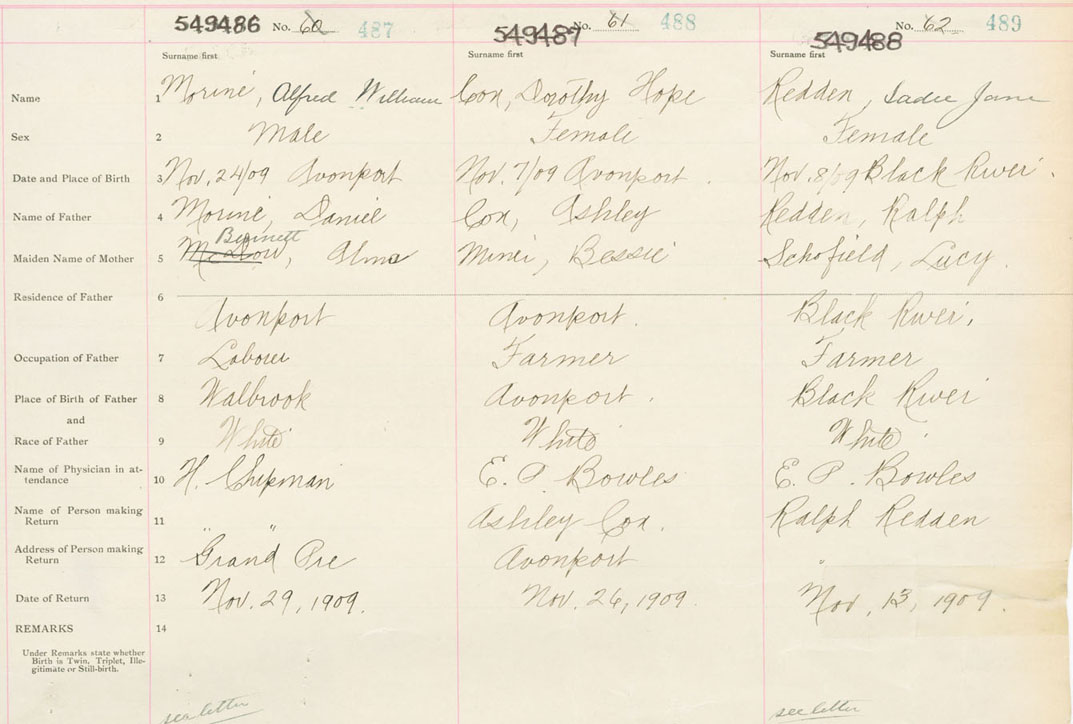 549486 No. 60 487 549487 No. 61 488 549488 No. 62 489
Surname first Surname first Surname first
Name 1 Moriné, Alfred William Cox, Dorothy Hope Redden, Sadie Jane
Sex 2 Male Female Female
Date and Place of Birth 3 Nov. 24/09 Avonport Nov. 7/09 Avonport. Nov. 8/09 Black River.
Name of Father 4 Moriné, Daniel Cox, Ashley Redden, Ralph
Bennett
Maiden Name of Mother 5 , Alma Miner, Bessie Schofield, Lucy.
Residence of Father 6
Avonport Avonport. Black River,
Occupation of Father 7 Labourer Farmer Farmer
Place of Birth of Father 8 Walbrook Avonport. Black River
and
Race of Father 9 White White White
Name of Physician in at-
tendance 10 H. Chipman E. P. Bowles E. P. Bowles
Name of Person making
Return 11 " " Ashley Cox. Ralph Redden
Address of Person making
Return 12 Grand Pre Avonport "
Date of Return 13 Nov. 29, 1909. Nov. 26, 1909. Nov. 13, 1909.
REMARKS 14
Under Remarks state whether
Birth is Twin, Triplet, Ille-
gitimate or Still-birth.
see letter see letter